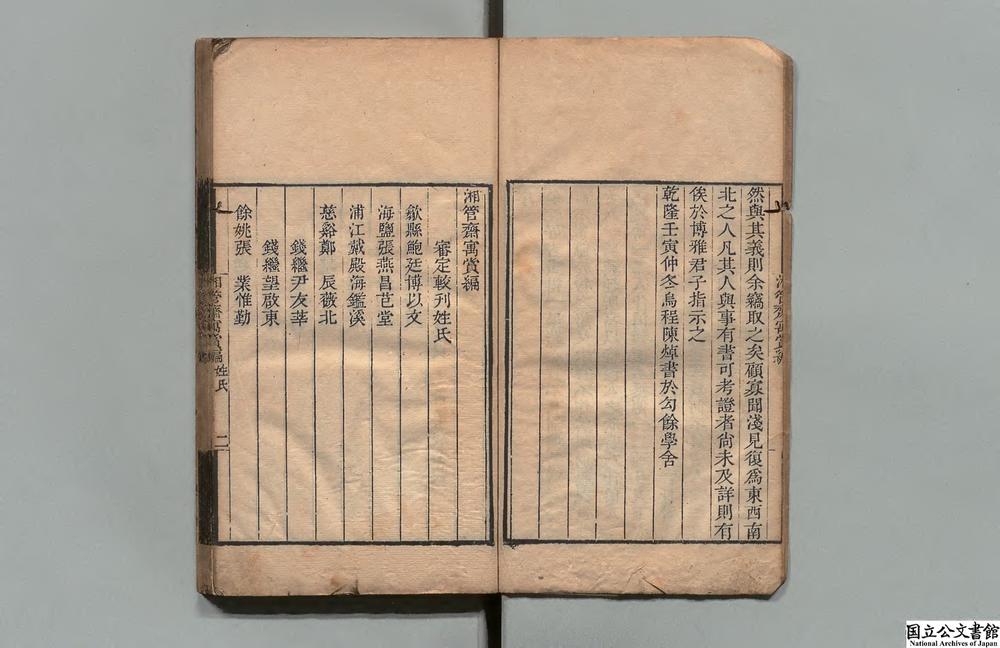 然與其義則余竊取之矣顧寡聞淺見復爲東西南
北之人凡其人與事有書可考證者尙未及詳則有
俟於博雅君子指示之
乾隆壬寅仲冬烏程陳焯書於勾餘學舍
湘管齋寓賞編
審定較刊姓氏
歙縣鮑廷博以文
海鹽張燕昌芑堂
浦江戴殿海鑑溪
慈谿鄭 辰薇北
錢繼尹友莘
錢繼望啟東
餘姚張 業惟勤
湘管齋寓賞編姓氏 二
国立公文書館
National Archives of Japan